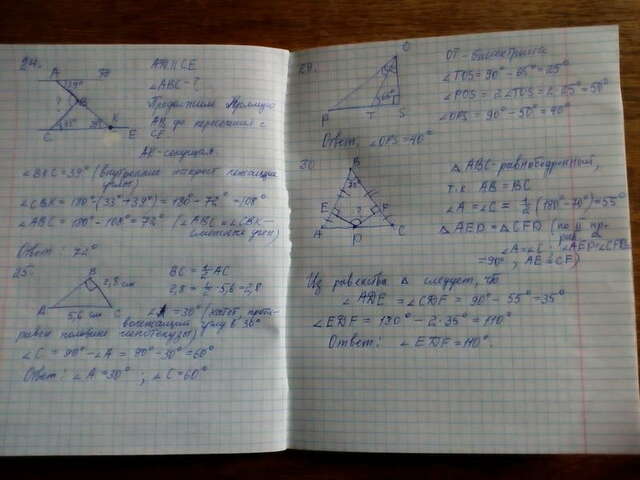 24.
AD || CE
∠ABC - ?
Продолжим
AB до пересечения с
CE
AK - секущая
∠BKC = 39° (внутренние накрест лежащие
углы)
∠CBK = 180° - (33° + 39°) = 180° - 72° = 108°
∠ABC = 180° - 108° = 72° (∠ABC и ∠CBK -
смежные углы)
Ответ: 72°
25.
A
B
C
2,8 см
5,6 см
BC = 1/2 AC
2,8 = 1/2 · 5,6 = 2,8
∠A = 30° (катет, проти-
волежащий углу в 30°
равен половине гипотенузы)
∠C = 90° - ∠A = 90° - 30° = 60°
Ответ: ∠A = 30° ; ∠C = 60°
29.
O
P
T
S
65°
OT - биссектриса
∠TOS = 90° - 65° = 25°
∠POS = 2∠TOS = 2 · 25° = 50°
∠OPS = 90° - 50° = 40°
Ответ, ∠OPS = 40°
30.
B
E
F
A
D
C
?
Δ ABC - равнобедренный,
т.к AB = BC
∠A = ∠C = 1/2 (180° - 70°) = 55°
Δ AED = Δ CFD (по II пр.
∠A = ∠C ; ∠AED = ∠CFD
= 90° ; AE = CF)
Из равенства Δ следует, что
∠ADE = ∠CDF = 90° - 55° = 35°
∠EDF = 180° - 2 · 35° = 110°
Ответ: ∠EDF = 110°.